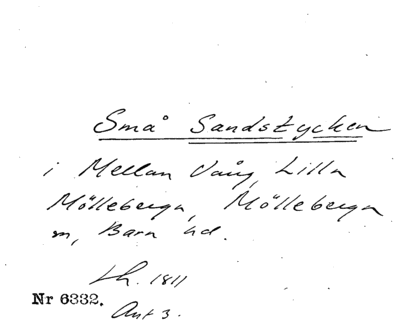 Små Sandstycken
i Mellan Vång, Lilla
Mölleberga, Mölleberga
sn, Bara hd.
Lh. 1811
Nr 6332.
Ant 3.